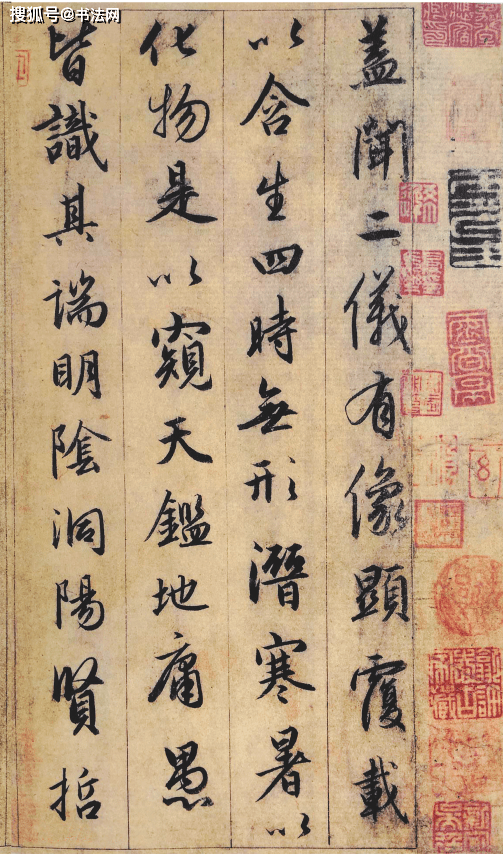 搜狐号@书法网
盖聞二儀有像顯覆載
以含生四時無形潛寒暑以
化物是以窺天鑑地庸愚
皆識其端明陰洞陽賢哲